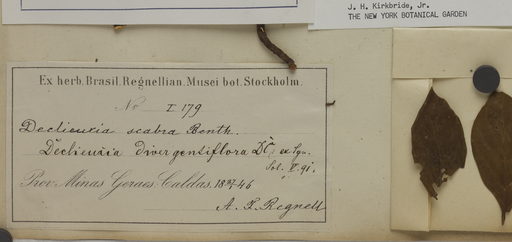 J. H. Kirkbride, Jr.
THE NEW YORK BOTANICAL GARDEN
Ex herb. Brasil. Regnellian. Musei bot. Stockholm.
No I. 179
Declieuxia scabra Benth.
Declieuxia divergentiflora DC. ex Syn.
Prov. Minas Geraes. Caldas. 46
A. F. Regnell